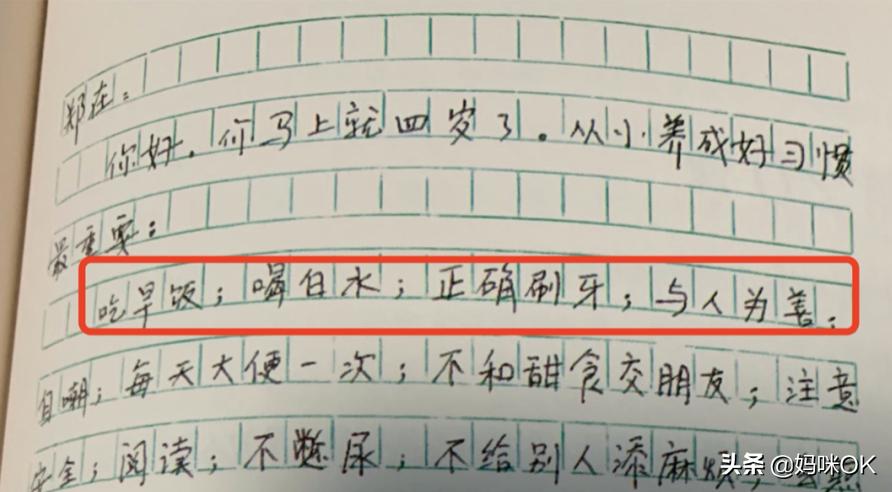 郑在：
你好。你马上就四岁了。从小养成好习惯
最重要：
吃早饭；喝白水；正确刷牙；与人为善；
自嘲；每天大便一次；不和甜食交朋友；注意
安全；阅读；不憋尿；不给别人添麻烦；
头条 @妈咪OK